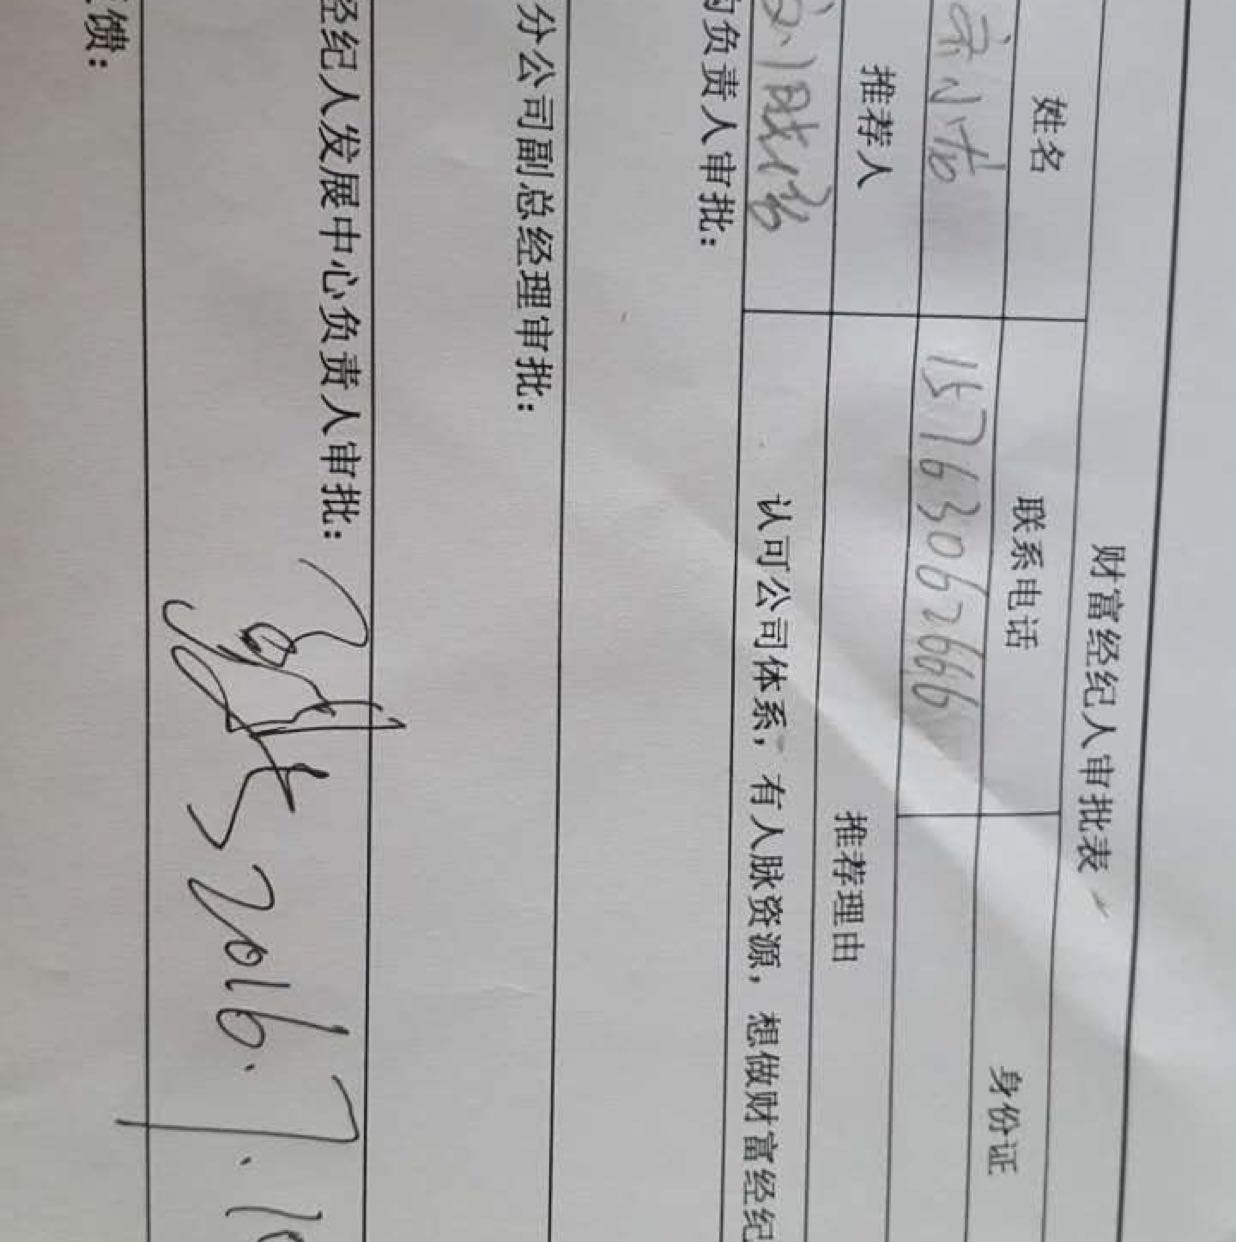 财富经纪人审批表
姓名 联系电话 身份证
宋小龙 15763062666
推荐人 推荐理由
认可公司体系，有人脉资源，想做财富经纪
负责人审批：
分公司副总经理审批：
经纪人发展中心负责人审批： 2016.7.10
馈：